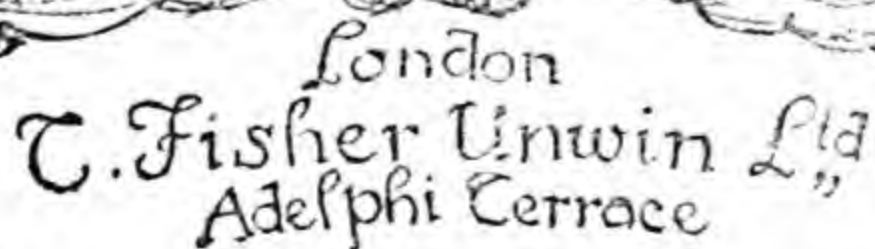 London
T. Fisher Unwin Ltd
Adelphi Terrace